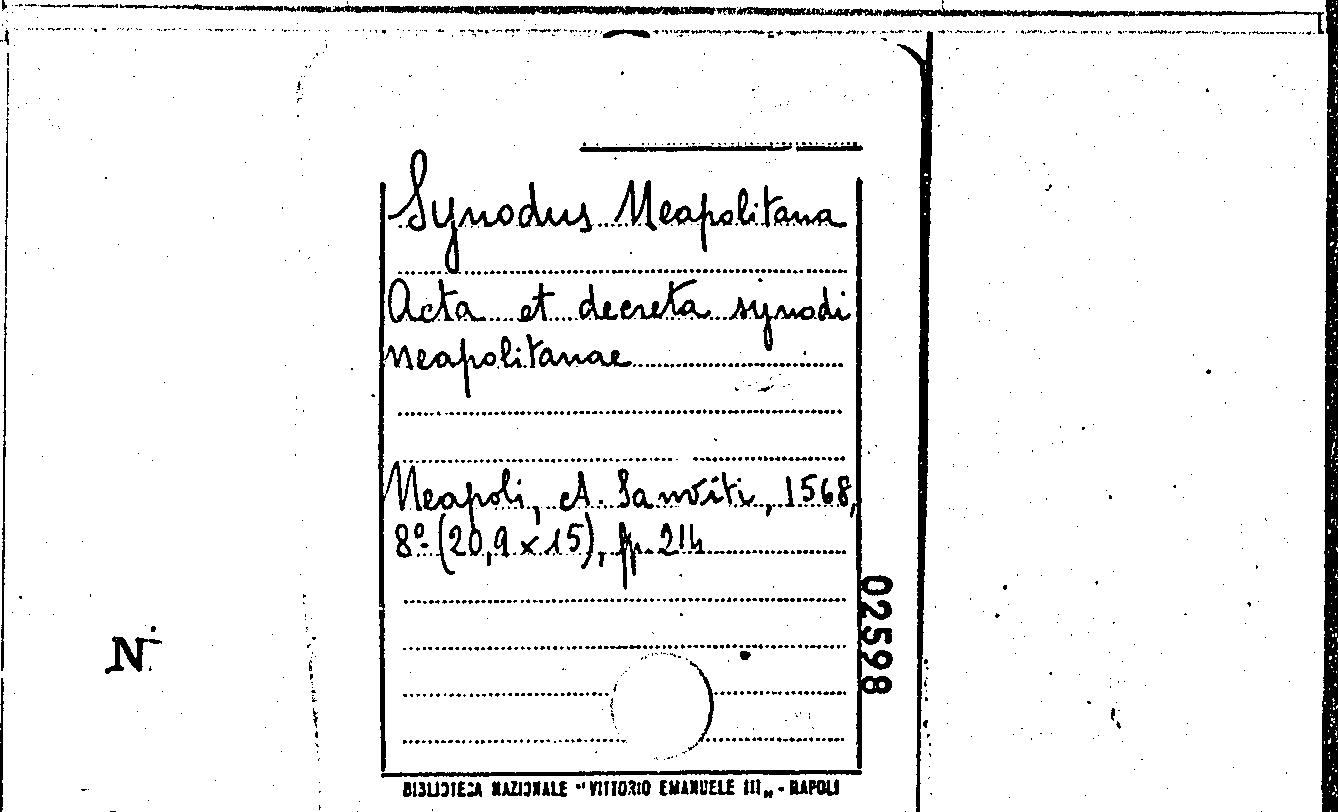 Synodus Neapolitana
Acta et decreta synodi
neapolitanae
Neapoli, A. Sanviti, 1568,
8º (20,9 × 15), pp. 214
02598
N.
BIBLIOTECA NAZIONALE "VITTORIO EMANUELE III" - NAPOLI